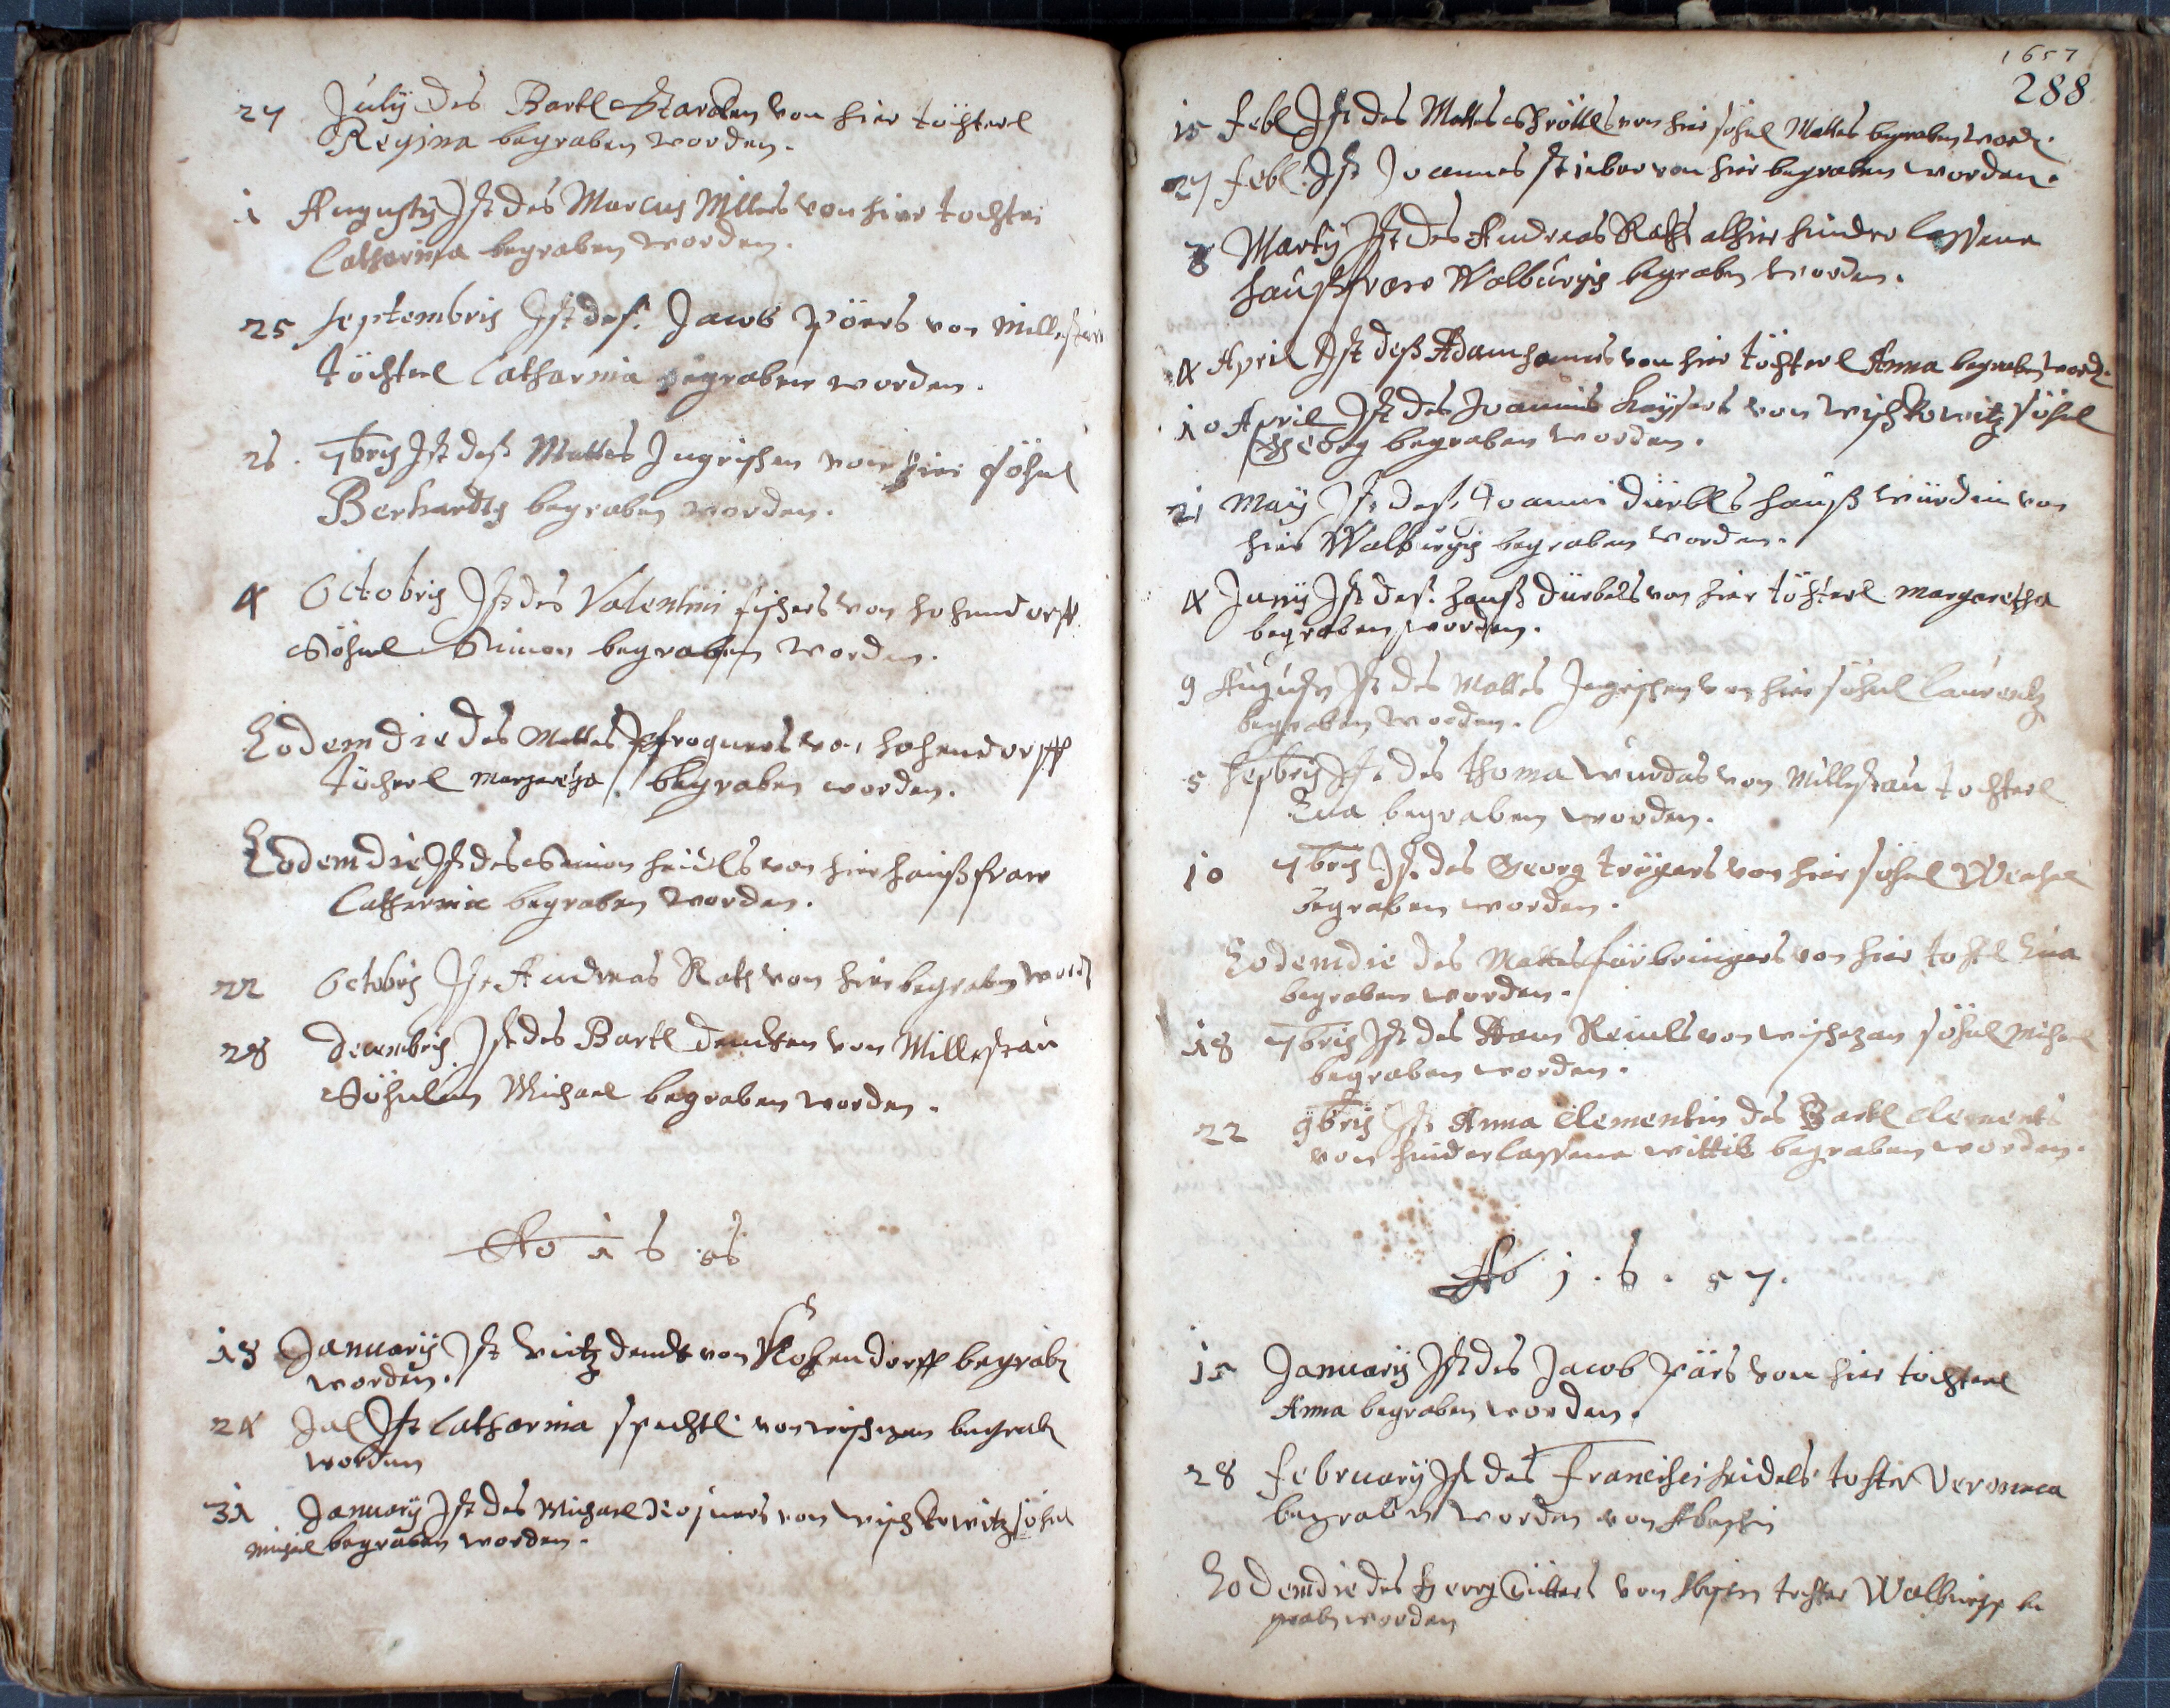 27 July des Bartl von hier töchterl
Regina begraben worden.
1 Augusty Ist des Marcus Millers von hier tochter
Catharina begraben worden.
25 Septembris Ist deß Jacob Pöers von Millestau
töchterl Catharina begraben worden.
26. 7bris Ist deß Mattes Ingrischen von hier söhnl
begraben worden.
4 Octobris Ist des Valentini fischers von hohendorff
Söhnl Simon begraben worden.
Eodem die des Mattes von hohendorff
töcherl margaretha begraben worden.
Eodem die Ist des Simon heidls von hier haußfraw
Catharina begraben worden.
22 Octobris Ist Andreas Rath von hier begraben word
28 decembris Ist des Bartl von Millestau
Söhnlein Michael begraben worden.
Ao 1656
18 January Ist Veitz von Hohendorff begrab
worden.
24 Jal Ist Catharina spechtl von begrab
worden
31 January Ist des Michael von Wischkowitz söhnl
Michael begraben worden.
1657
288
15 Febl Ist des Mattes Schröttls von hier söhnl Mattes begraben word.
27 febl. Ist Joannes stieber von hier begraben worden.
8 Marty Ist des Andreas Raths alhier hinder lassene
haußfraw Walburgis begraben worden.
4 April Ist deß Adam von hier töchterl Anna begraben word.
10 April Ist des Joannis Kaysers von Wischkowitz söhnl
Georg begraben worden.
21 May Ist deß Joanni dürbls hauß würdin von
hier Walburgis begraben worden.
4 Juny Ist deß hanß dürbels von hier töchterl margaretha
begraben worden.
9 Augusty Ist des Mattes Ingrischen von hier söhnl Laurentz
begraben worden.
5 Sepbris Ist des thoma wurdas von Millestau tochterl
Eua begraben worden.
10 7bris Ist des Georg trögers von hier söhnl Wenzel
begraben worden.
Eodem die des Mattes fürbringers von hier tochtl Eua
begraben worden.
18 7bris Ist des Reinls von söhnl Michael
begraben worden.
22 9bris Ist Anna Clementin des Bartl Clements
von hinderlassene wittib begraben worden.
Ao 1.6.57.
15 January Ist des Jacob Pärs von hier töchterl
Anna begraben worden.
28 february Ist des Francisci heidels tochter Veronica
begraben worden von
Eodem die des Georg von tochter Walburga be
graben worden